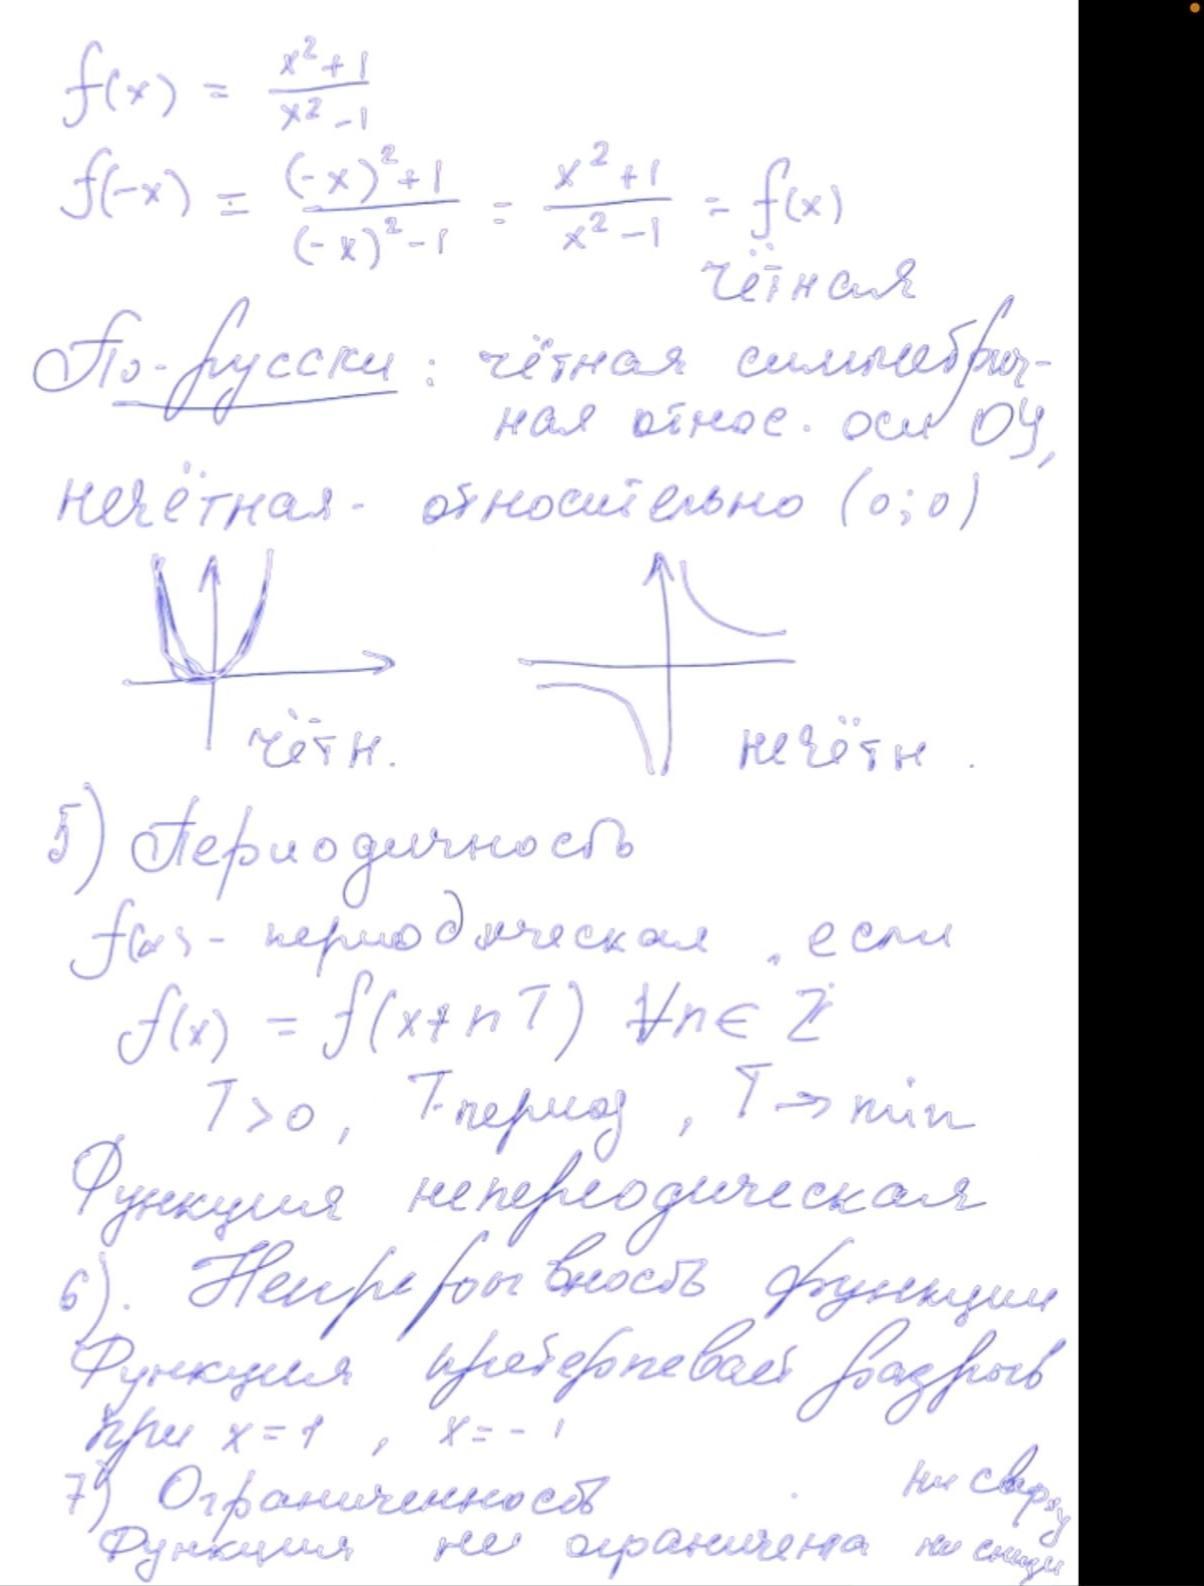 f(x) = (x²+1)/(x²-1)
f(-x) = ((-x)²+1)/((-x)²-1) = (x²+1)/(x²-1) = f(x)
чётная
По-русски: чётная симметрич-
ная относ. оси OY,
нечётная - относительно (0;0)
чётн. нечётн.
5) Периодичность
f(x) - периодическая, если
f(x) = f(x+nT) ∀n∈Z
T>0, T-период, T→min
Функция непериодическая
6). Непрерывность функции
Функция претерпевает разрыв
при x=1, x=-1
7) Ограниченность
Функция не ограничена ни сверху
ни снизу